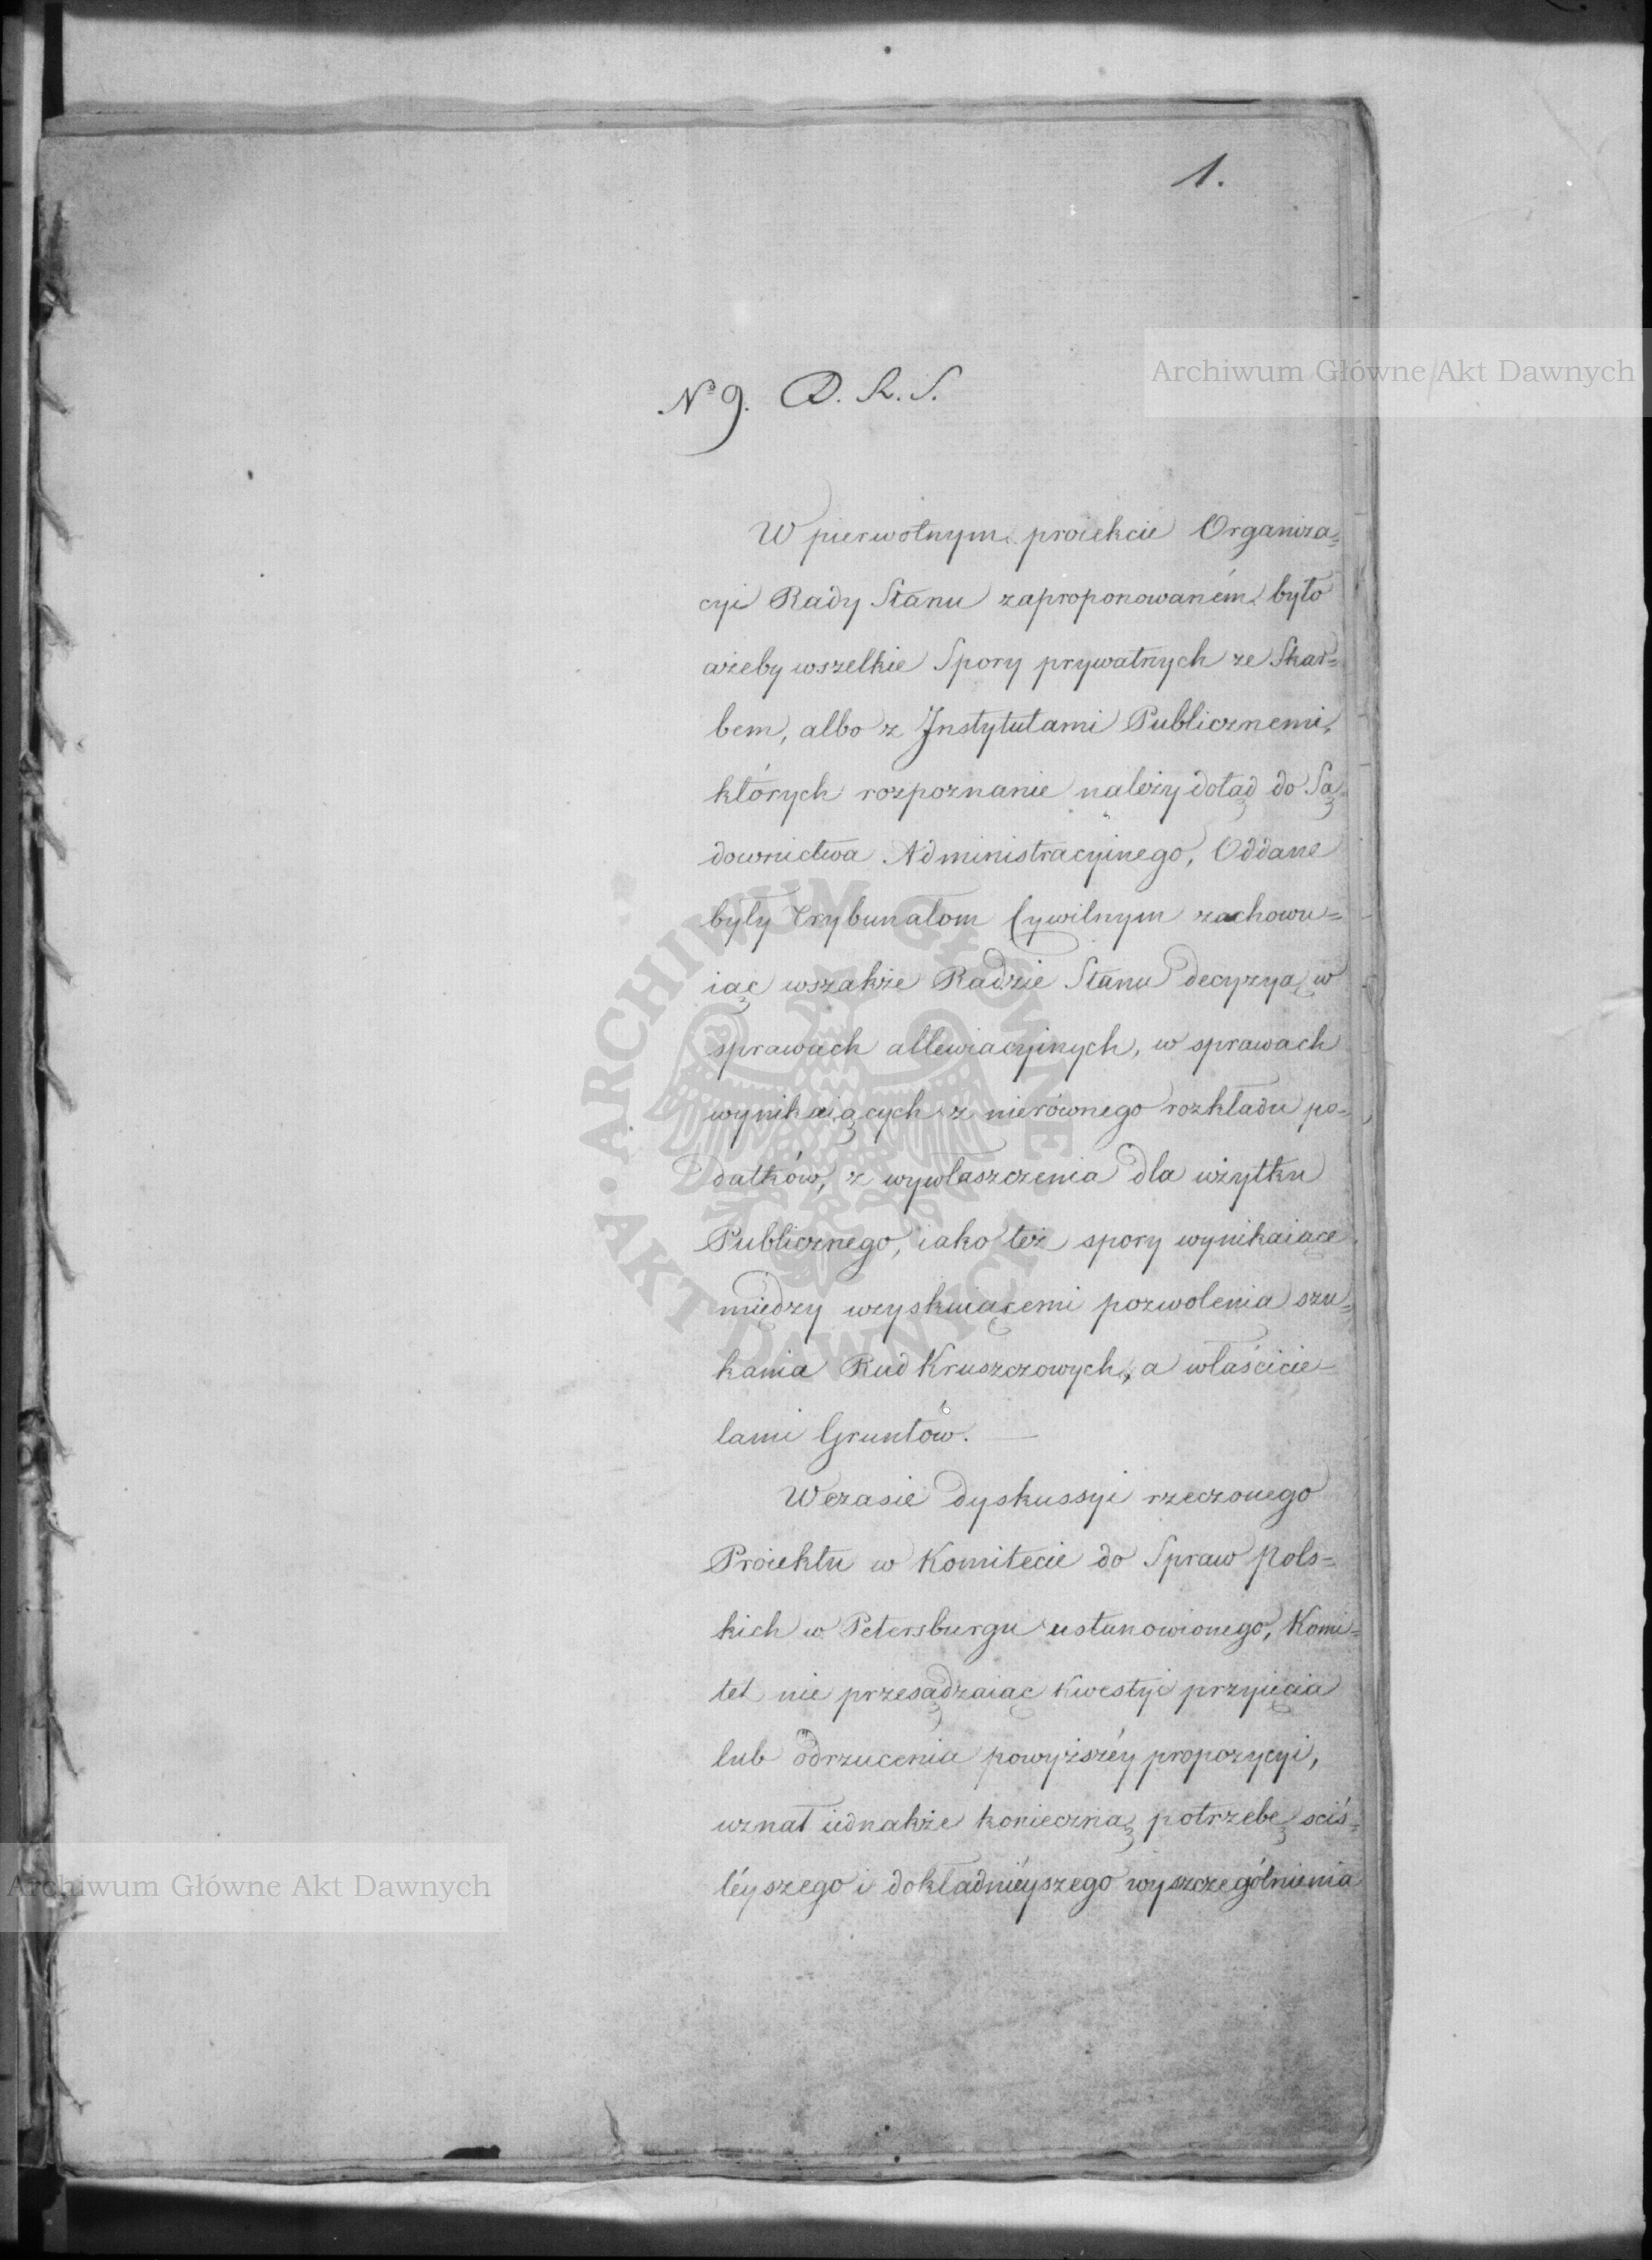 1.
Archiwum Główne Akt Dawnych
No 9. D. R. S.
W pierwotnym proiekcie Organiza=
cyi Rady Stanu zaproponowaném było
ażeby wszelkie Spory prywatnych ze Skar=
bem, albo z Instytutami Publicznemi,
których rozpoznanie należy dotąd do Są=
downictwa Administracyinego, Oddane
były Trybunałom Cywilnym zachowu=
iąc wszakże Radzie Stanu decyzyą w
sprawach allewiacyinych, w sprawach
wynikaiących z nierównego rozkładu po=
datków, z wywłaszczenia dla użytku
Publicznego, iako też spory wynikaiące
między uzyskuiącemi pozwolenia szu=
kania Rud Kruszczowych, a właścicie=
lami Gruntów. —
W czasie dyskussyi rzeczonego
Proiektu w Komitecie do Spraw Pols=
kich w Petersburgu ustanowionego, Komi=
tet nie przesądzaiąc kwestyi przyięcia
lub odrzucenia powyższéy propozycyi,
uznał iednakże konieczną potrzebę ściś=
léyszego i dokładniéyszego wyszczególnienia
Archiwum Główne Akt Dawnych
ARCHIWUM GŁÓWNE • AKT DAWNYCH •